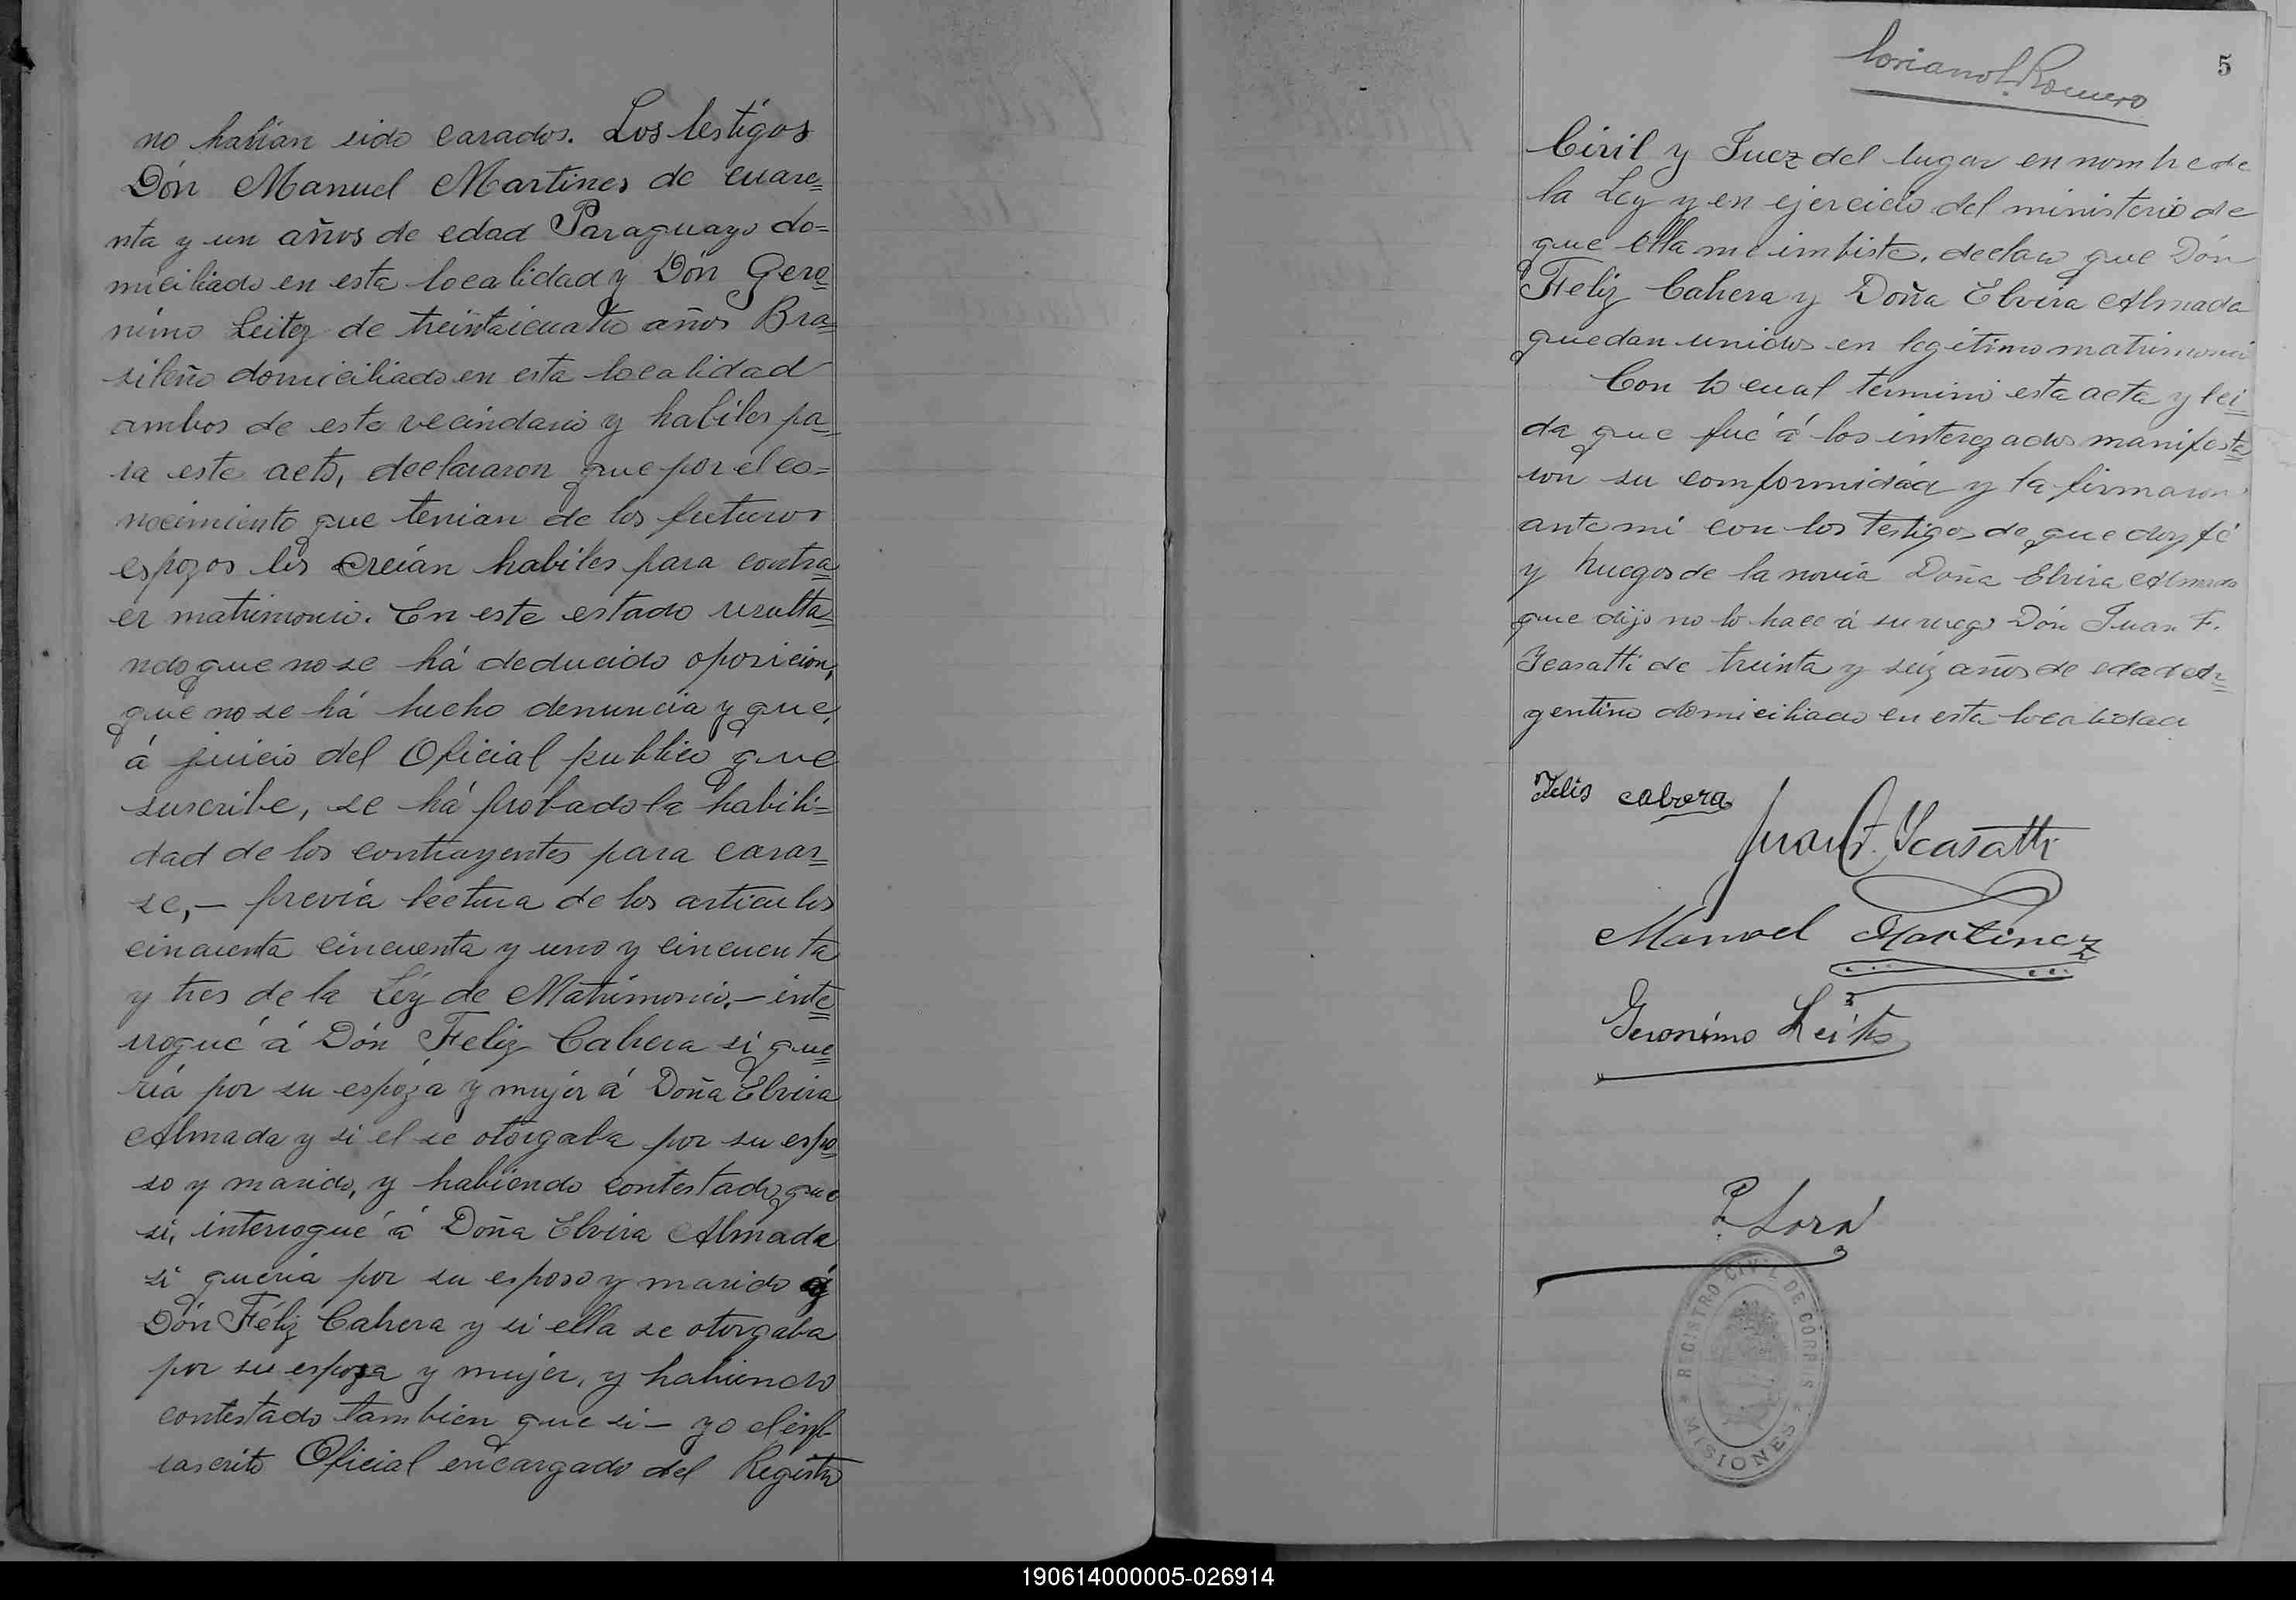 no habian sido casados. Los testigos
Dón Manuel Martines de cuare=
nta y un años de edad Paraguayo do=
miciliado en esta localidad y Dón Gero=
nimo Leitez de treintaicuatro años Bra=
sileño domiciliado en esta localidad
ambos de este vecindario y habiles pa=
ra este acto, declararon que por el co=
nocimiento que tenian de los futuros
espozos los creián habiles para contra=
er matrimonio. En este estado resulta=
ndo que no se há deducido oposicion,
que no se há hecho denuncia y que,
á juicio del Oficial publico que
suscribe, se há probado la habili=
dad de los contrayentes para casar=
se,- previa lectura de los articulos
cincuenta cincuenta y uno y cincuenta
y tres de la Léy de Matrimonio,- inte=
rrogué á Dón Feliz Cabrera si que=
ria por su espoza y mujer á Doña Elvira
Almada y si el se otorgaba por su espo=
so y marido, y habiendo contestado que
si, interrogué á Doña Elvira Almada
si queria por su esposo y marido á
Dón Féliz Cabrera y si ella se otorgaba
por su espoza y mujer, y habiendo
contestado tambien que si - yo el inf-
rascrito Oficial encargado del Registro
5
Romero
Civil y Juez del lugar en nombre de
la Ley y en ejercicio del ministerio de
que ella me imbiste, declaro que Dón
Feliz Cabrera y Doña Elvira Almada
quedan unidos en legitimo matrimonio
Con lo cual terminó esta acta y lei=
da que fué á los interezados manifesta=
ron su comformidád y la firmaron
ante mi con los testigos de que doy fé
y ruegos de la novia Doña Elvira Almada
que dijo no lo hace á su ruego Dón Juan F.
Ycasatti de treinta y seiz años de edad Ar=
gentino domiciliado en esta localidad
Felis cabrera
Juan F. Ycasatti
Manuel Martinez
Geronimo Leites
P. Lora
REGISTRO CIVIL DE CORPUS
MISIONES
190614000005-026914